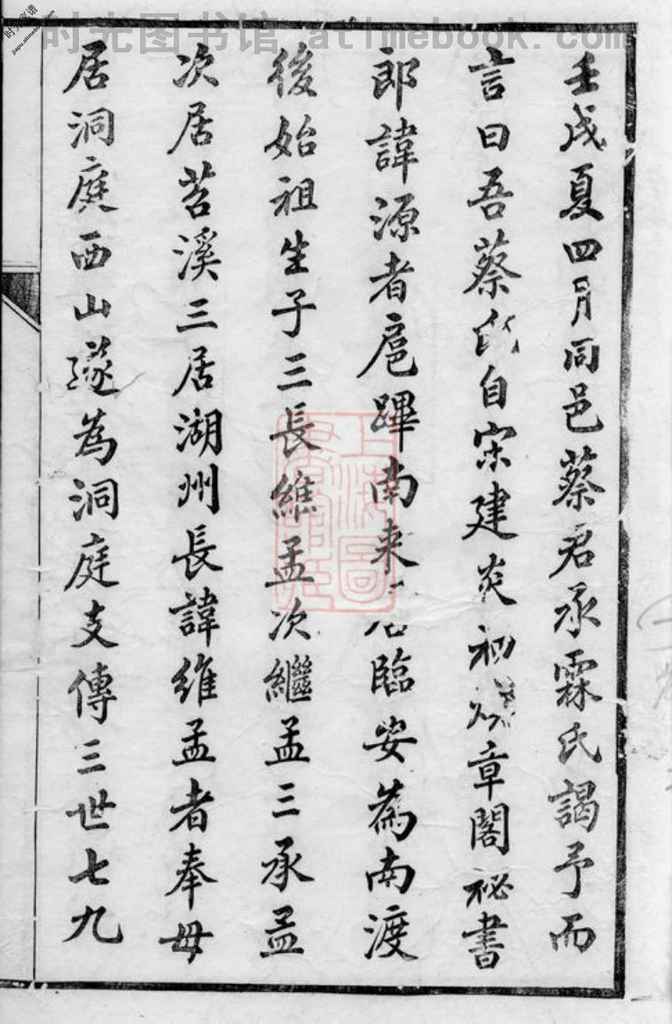 时光图书馆 atimebook.com
壬戌夏四月同邑蔡君承霖氏謁予而
言曰吾蔡氏自宋建炎初章閣秘書
郎諱源者扈蹕南來居臨安為南渡
後始祖生子三長維孟次繼孟三承孟
次居苕溪三居湖州長諱維孟者奉母
居洞庭西山遂為洞庭支傳三世七九